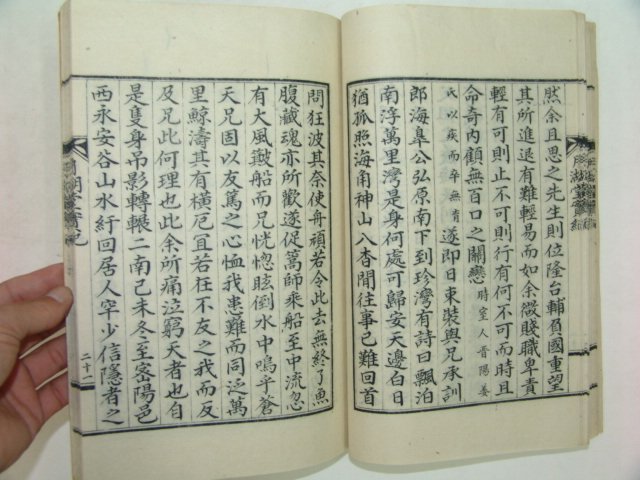 然余且思之先生則位隆台輔負國重望
其所進退有難輕易而如余微賤職卑責
輕有可則止不可則行有何不可而時且
命奇內顧無百口之關戀時室人晉陽姜
氏以疾而卒無育遂即日東裝與兄承訓
郎海皐公弘原南下到珍灣有詩曰飄泊
南浮萬里灣是身何處可歸安天邊白日
猶孤照海角神山八杳聞往事已難回首
問狂波其奈使舟頑若令此去無終了魚
腹藏魂亦所歡遂促蒿師乘船至中流忽
有大風敲船而兄恍惚眩倒水中嗚乎蒼
天兄固以友篤之心恤我患難而同泛萬
里鯨濤其有橫厄宜若在不友之我而反
及兄此何理也此余所痛泣窮天者也自
是隻身吊影轉輾二南己未冬至密陽邑
西永安谷山水紆回居人罕少信隱者之
湖堂實紀
二十二